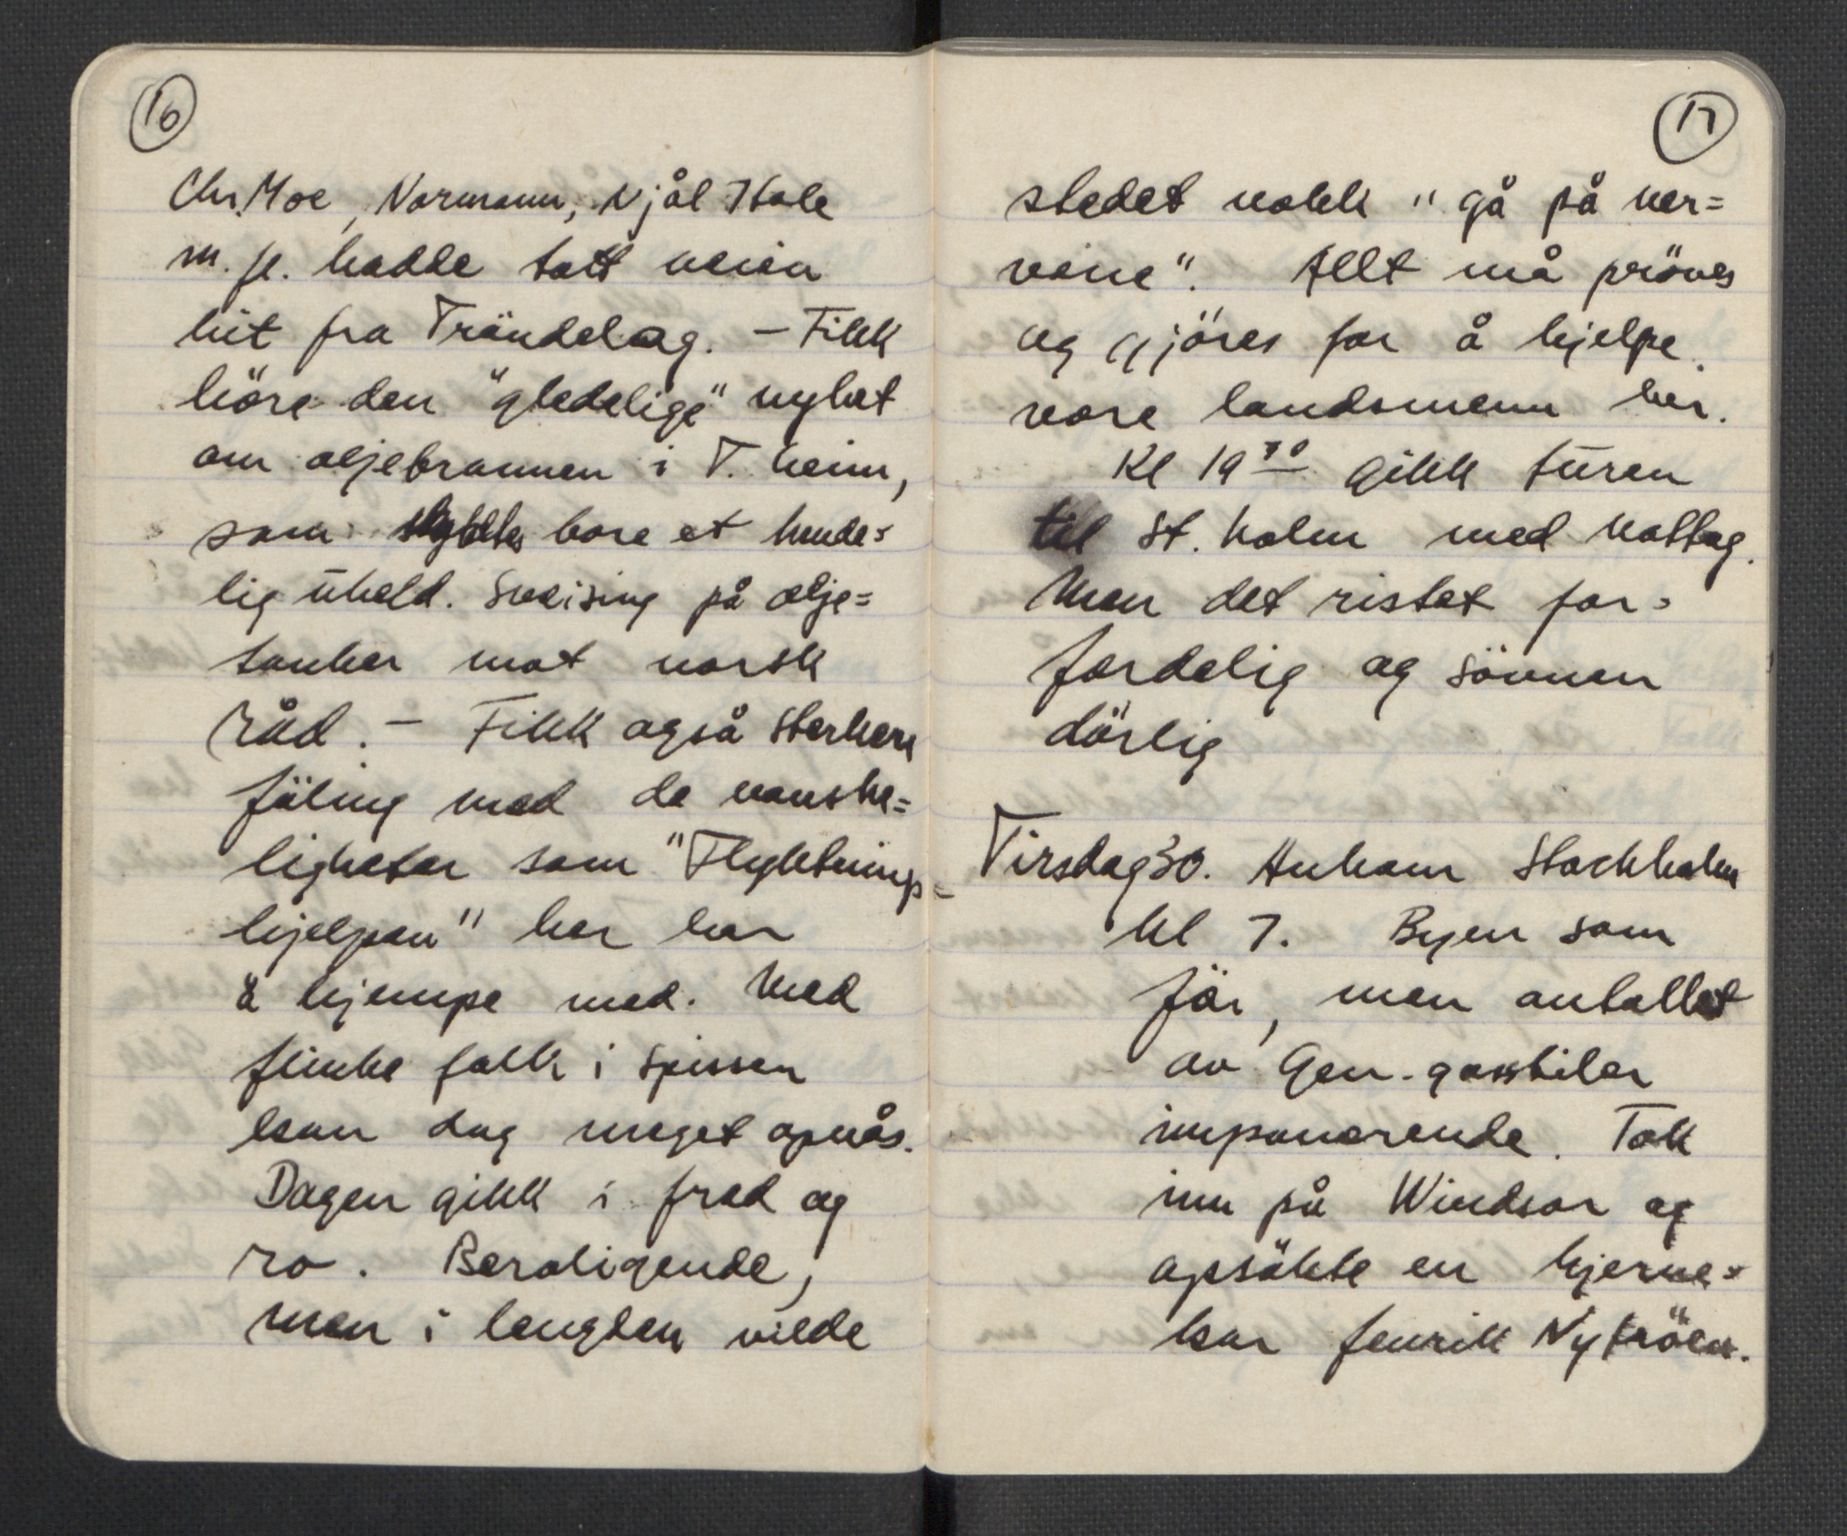 16
Chr. Moe, Normann, Njål Hole
m. fl. hadde tatt veien
hit fra Tröndelag. - Fikk
höre den "gledelige" nyhet
om oljebrannen i T.heim,
som skyldtes bare et hende=
lig uheld. Sveising på olje=
tanker mot norsk
råd. - Fikk også sterkere
föling med de vanske=
ligheter som "Flyktnings=
hjelpen" her har
å kjempe med. Med
flinke folk i spissen
kan dog meget opnås.
Dagen gikk i fred og
ro. Beroligende,
men i lengden vilde
17
stedet nokk "gå på ner=
vene". Allt må pröves
og gjöres for å hjelpe
vore landsmenn her.
Kl 19 30 gikk turen
til St. holm med nattog.
Men det ristet for=
ferdelig og sövnen
dårlig
Tirsdag 30. Ankom Stockholm
kl 7. Byen som
för, men antallet
av Gen.gassbiler
imponerende. Tok
inn på Windsor og
opsökte en kjerne=
kar fenrik Nytröen.